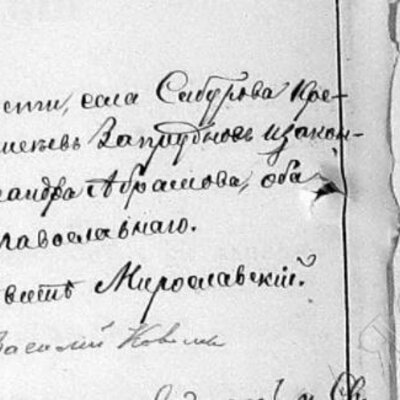 сти, села Сабурова кре-
алексѣевъ Запрудновъ и закон-
сандра Абрамова, оба
равославнаго.
витъ Мирославскій.
Василій Ковале